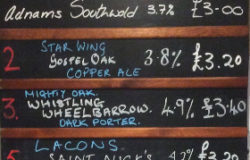 Adnams Southwold 3.7% £3.00
2 STAR WING
GOSPEL OAK 3.8% £3.20
COPPER ALE
MIGHTY OAK.
3. WHISTLING 4.9% £3.40
WHEELBARROW.
DARK PORTER.
LACONS.
5 SAINT NICK'S